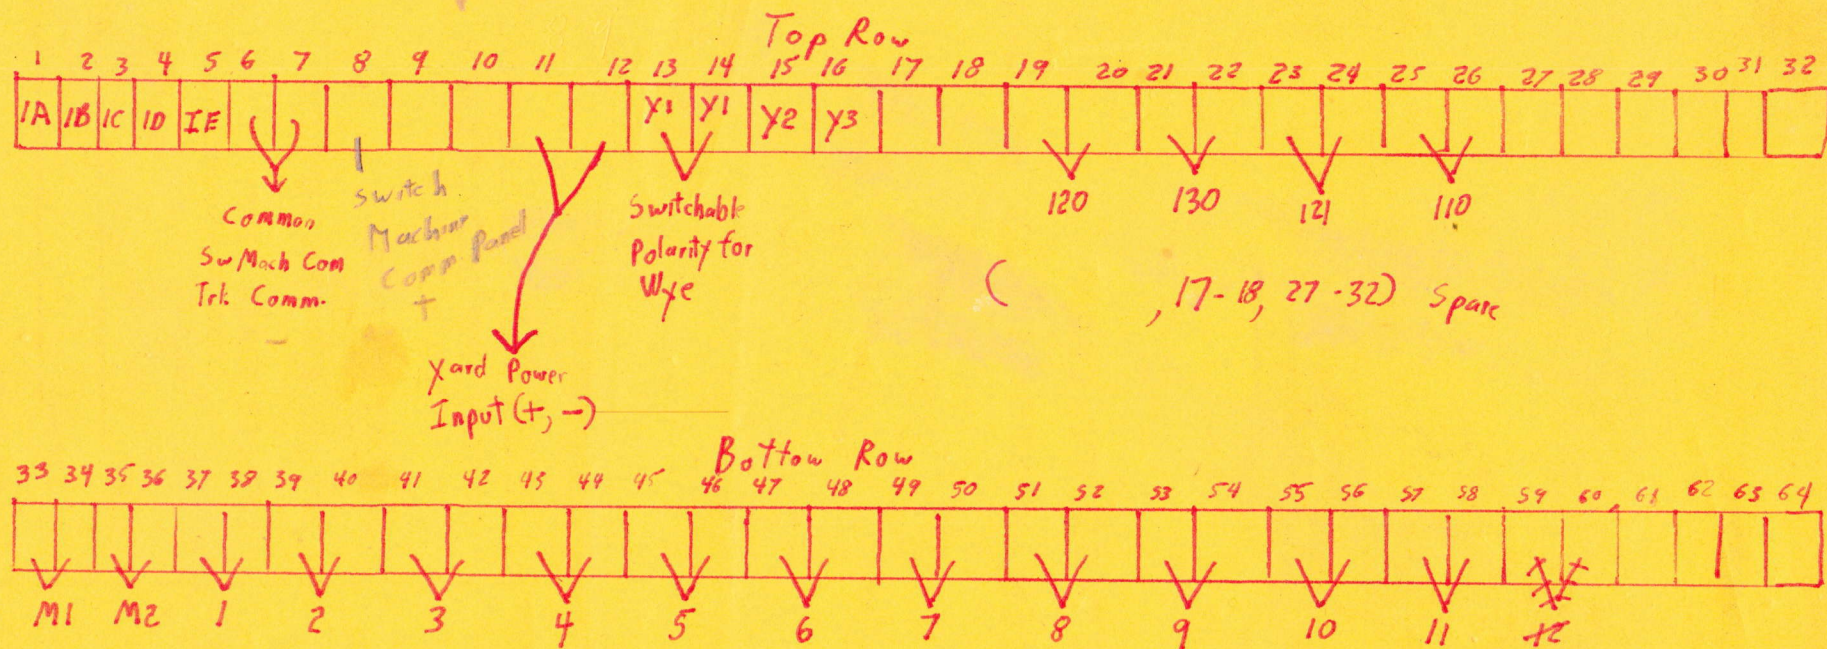 Top Row
1 2 3 4 5 6 7 8 9 10 11 12 13 14 15 16 17 18 19 20 21 22 23 24 25 26 27 28 29 30 31 32
1A 1B 1C 1D IE Y1 Y1 Y2 Y3
120 130 121 110
Common
Sw Mach Com
Trk Comm.
-
Switch
Machine
Comm Panel
+
Switchable
Polarity for
Wye
( , 17-18, 27-32) Spare
Yard Power
Input (+, -)
Bottow Row
33 34 35 36 37 38 39 40 41 42 43 44 45 46 47 48 49 50 51 52 53 54 55 56 57 58 59 60 61 62 63 64
M1 M2 1 2 3 4 5 6 7 8 9 10 11 12